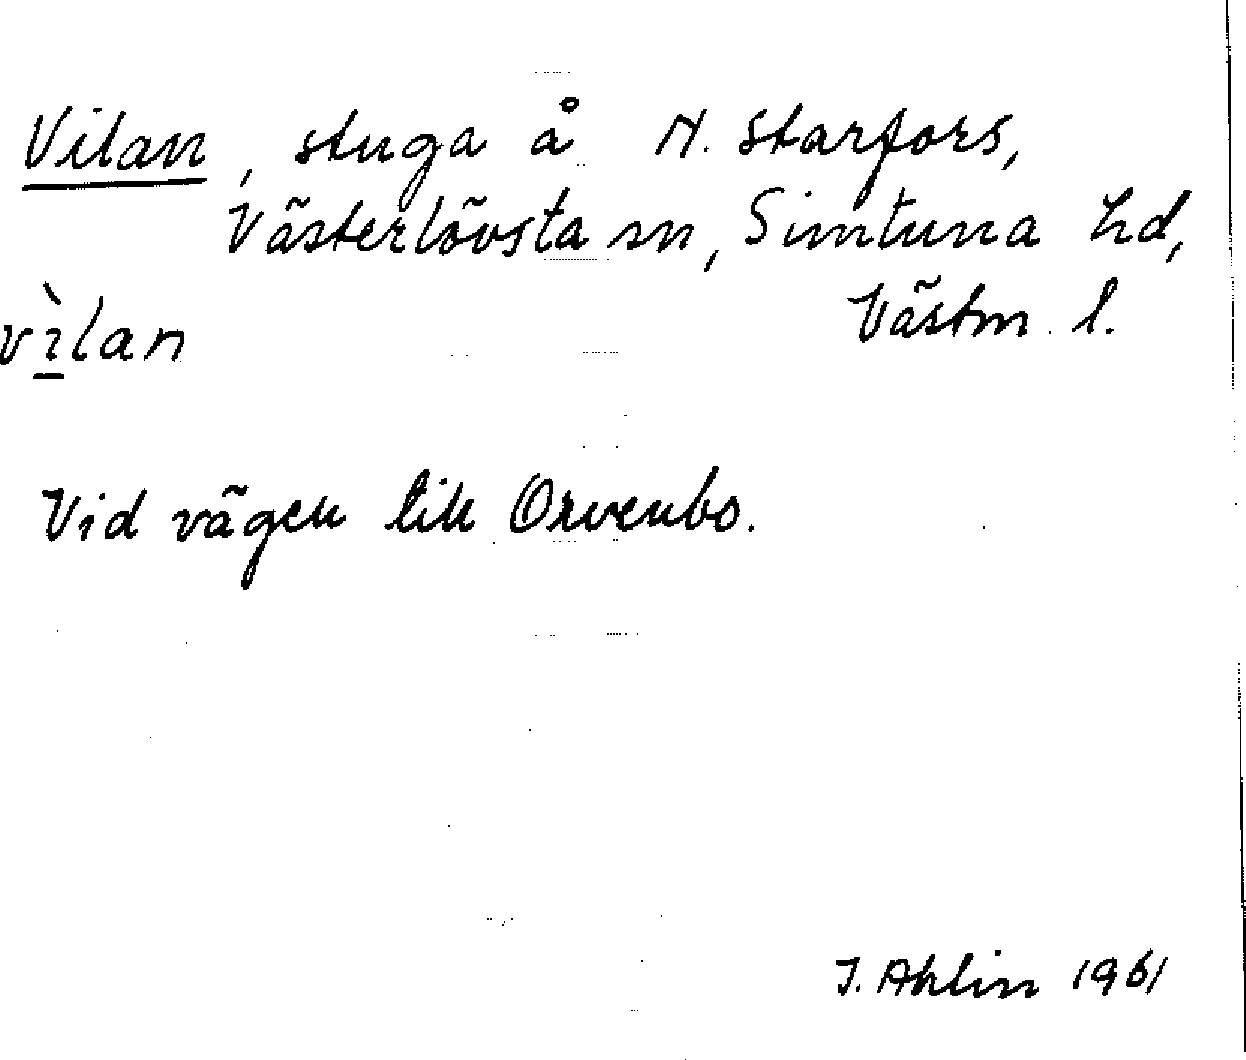 Vilan, stuga å N. Starfors,
Västerlövsta sn, Simtuna hd,
Västm. l.
vìlan
Vid vägen till Orvenbo.
I. Ahlin 1961